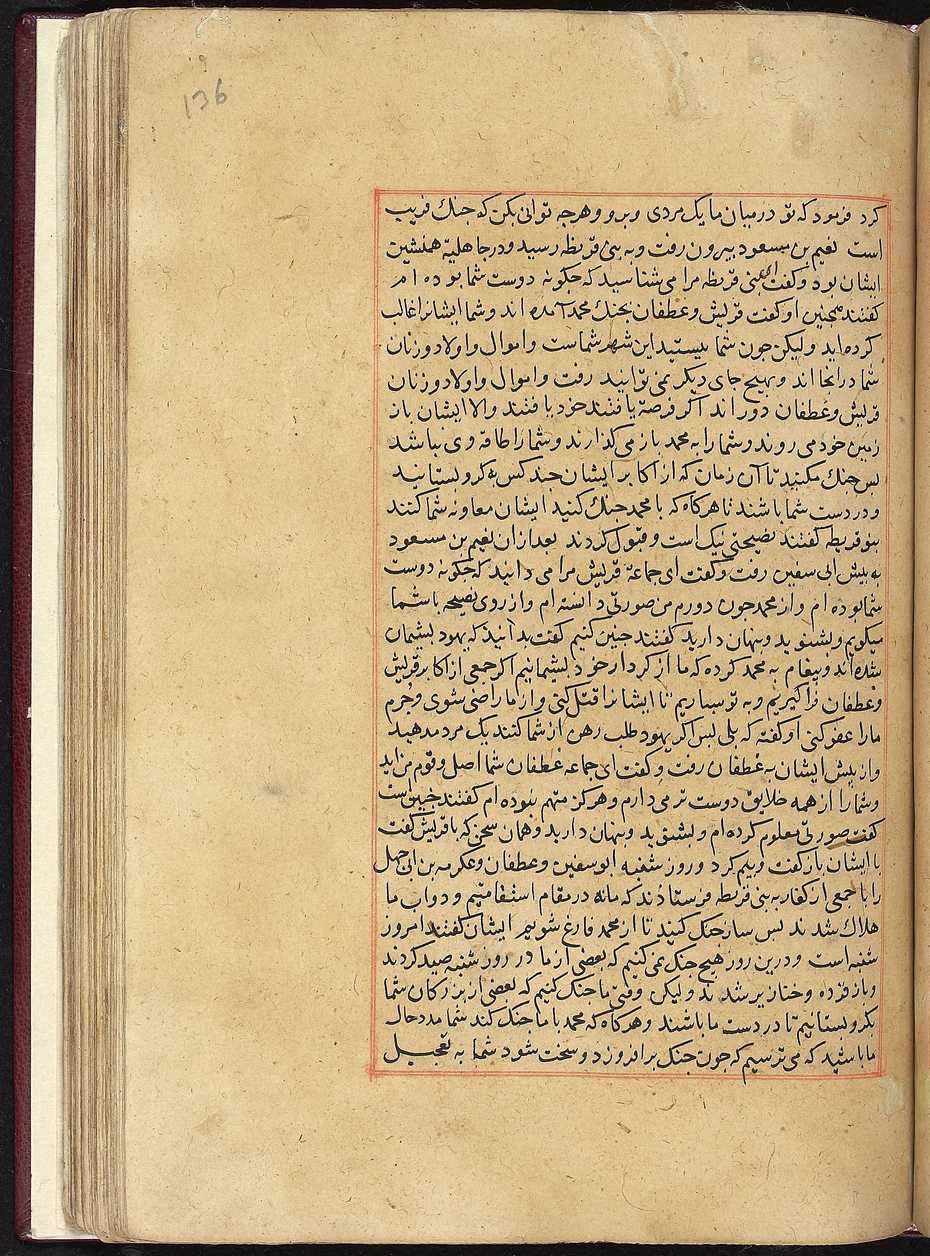 136
کرد فرمود که تو در میان ما یک مردی و برو و هرچه توانی بکن که جنک فریب
است نعیم بن مسعود بیرون رفت و به بنی قریظه رسید و در جاهلیة همنشین
ایشان بود و کفت ای بنی قریظه مرا می شناسید که چکونه دوست شما بوده ام
کفتند همچنین او کفت قریش و غطفان بجنک محمد آمده اند و شما ایشانرا غالب
کرده اید و لیکن جون شما نیستید این شهر شماست و اموال و اولاد و زنان
شما در انجا اند و بهیج جای دیکر نمی توانید رفت و اموال و اولاد و زنان
قریش و غطفان دور اند اکر فرصة یافتند خود یافتند والا ایشان باز
زمین خود می روند و شما را به محمد باز می کذارند و شما را طاقة وی نباشد
بس جنك مکنید تا آن زمان که از اکابر ایشان جند کس به کرو بستانید
و در دست شما باشند تا هرکاه که با محمد جنك کنید ایشان معاونة شما کنند
بنو قریظه کفتند نصیحتی نیک است و قبول کردند بعد از ان نعیم بن مسعود
به بیش ابی سفین رفت و کفت ای جماعة قریش مرا می دانید که چکونه دوست
شما بوده ام و از محمد جون دورم من صورتی دانسته ام و از روی نصیحة با شما
میکویم و بشنوید و بنهان دارید کفتند جنین کنیم کفت بدانید که یهود بشیمان
شده اند و بیغام به محمد کرده که ما از کردار خود بشیمانیم اکر جمعی از اکابر قریش
و غطفان فرا کیریم و به تو سباریم تا ایشانرا قتل کنی و از ما راضی شوی و جرم
ما را عفو کنی او کفته که بلی بس اکر یهود طلب رهن از شما کنند یک مرد مدهید
و از بیش ایشان به غطفان رفت و کفت ای جماعة غطفان شما اصل و قوم من اید
و شما را از همه خلایق دوست تر می دارم و هرکز متهم نبوده ام کفتند جنین است
کفت صورتی معلوم کرده ام و بشنوید و بنهان دارید و همان سخن که با قریش کفت
با ایشان باز کفت و بیم کرد و روز شنبه ابو سفین و غطفان و عکرمه بن ابی جهل
را با جمعی از کفار به بنی قریظه فرستادند که ما نه در مقام استقامتیم و دواب ما
هلاک شدند بس ساز جنک کنید تا از محمد فارغ شویم ایشان کفتند امروز
شنبه است و درین روز هیج جنک نمی کنیم که بعضی از ما در روز شنبه صید کردند
و باز قرده و خنازیر شدند و لیکن وقتی ما جنک کنیم که بعضی از بزرکان شما
بکرو بستانیم تا در دست ما باشند و هرکاه که محمد با ما جنک کند شما مدد حال
ما باشید که می ترسیم که جون جنک بر افروزد و سخت شود شما به تعجیل